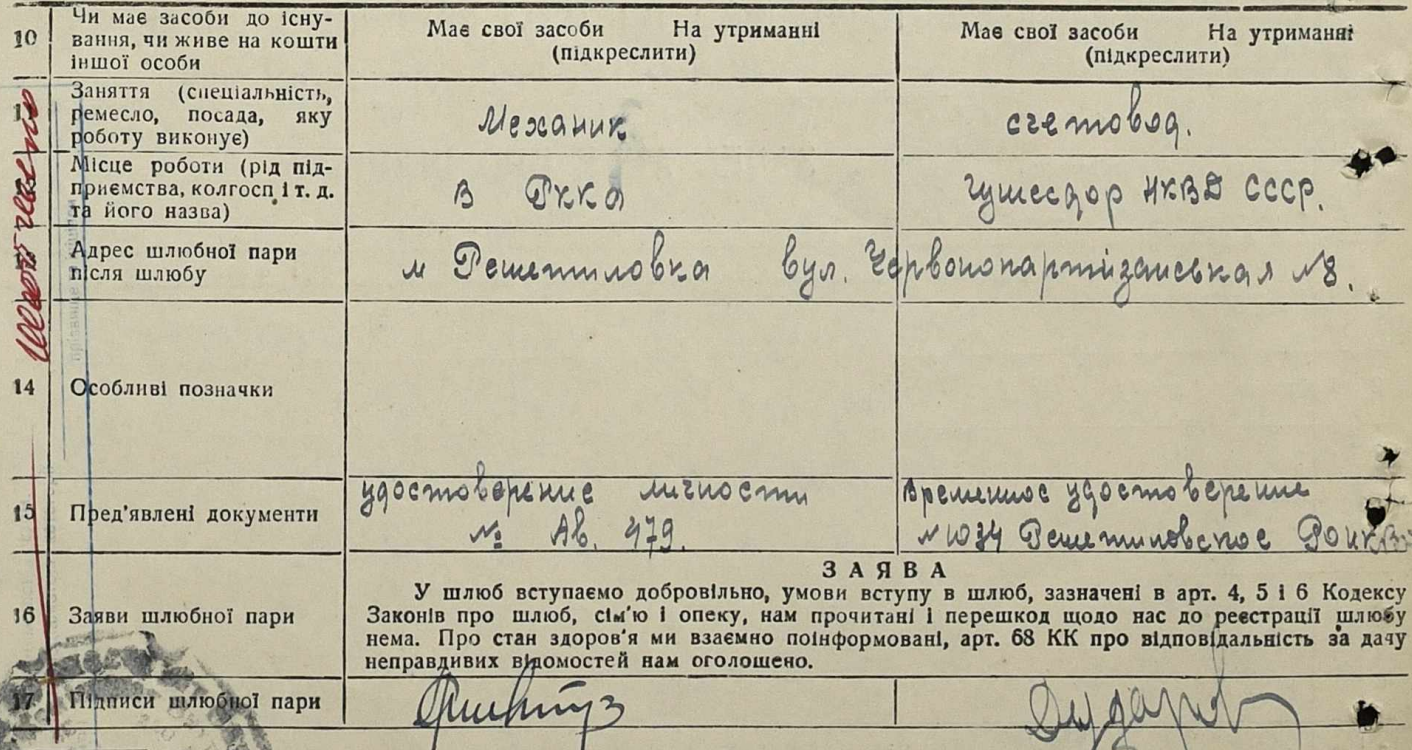 10 Чи має засоби до існу-
вання, чи живе на кошти
іншої особи
Має свої засоби На утриманні
(підкреслити)
Має свої засоби На утриманні
(підкреслити)
Заняття (спеціальність,
ремесло, посада, яку
роботу виконує)
Механик
счетовод.
Місце роботи (рід під-
приємства, колгосп і т. д.
та його назва)
в РККА
Гушосдор НКВД СССР.
Адрес шлюбної пари
після шлюбу
м Решетиловка вул. Червонопартізанськая №8.
14 Особливі позначки
15 Пред'явлені документи
удостоверение личности
№ Ав. 479.
Временное удостоверение
№1034 Решетиловское
16 Заяви шлюбної пари
ЗАЯВА
У шлюб вступаємо добровільно, умови вступу в шлюб, зазначені в арт. 4, 5 і 6 Кодексу
Законів про шлюб, сім'ю і опеку, нам прочитані і перешкод щодо нас до реєстрації шлюбу
нема. Про стан здоров'я ми взаємно поінформовані, арт. 68 КК про відповідальність за дачу
неправдивих відомостей нам оголошено.
17 Підписи шлюбної пари